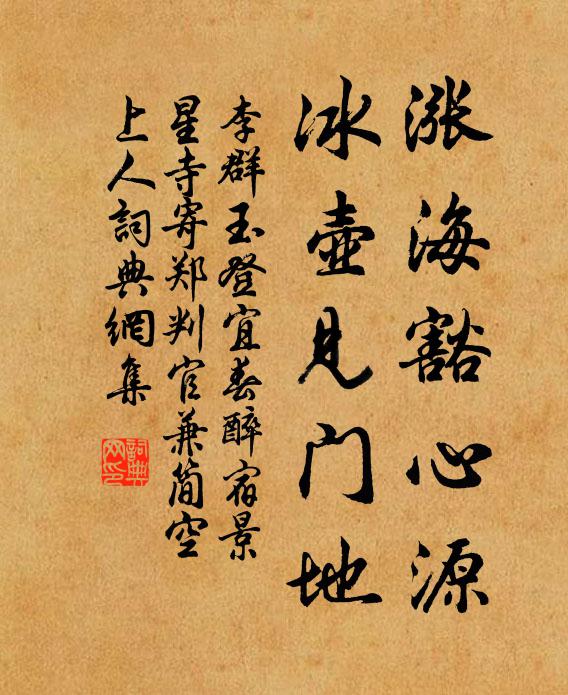 涨海豁心源
冰壶见门地
李群玉登宜春醉宿景
星寺寄郑判官兼简空
上人词典網集
詞典網印